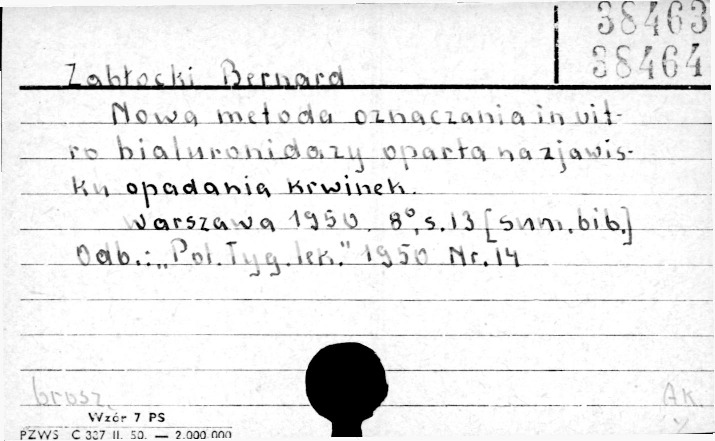 38463
38464
Zabłocki Bernard
Nowa metoda oznaczania in vit-
ro hialuronidazy oparta na zjawis-
ku opadania krwinek.
Warszawa 1950. 8°, s. 13 [Sum. bib.]
Odb.: „Pol. Tyg. lek." 1950 Nr. 14
brosz.
AK.
Wzór 7 PS
PZWS C 337 II. 50. — 2.000.000